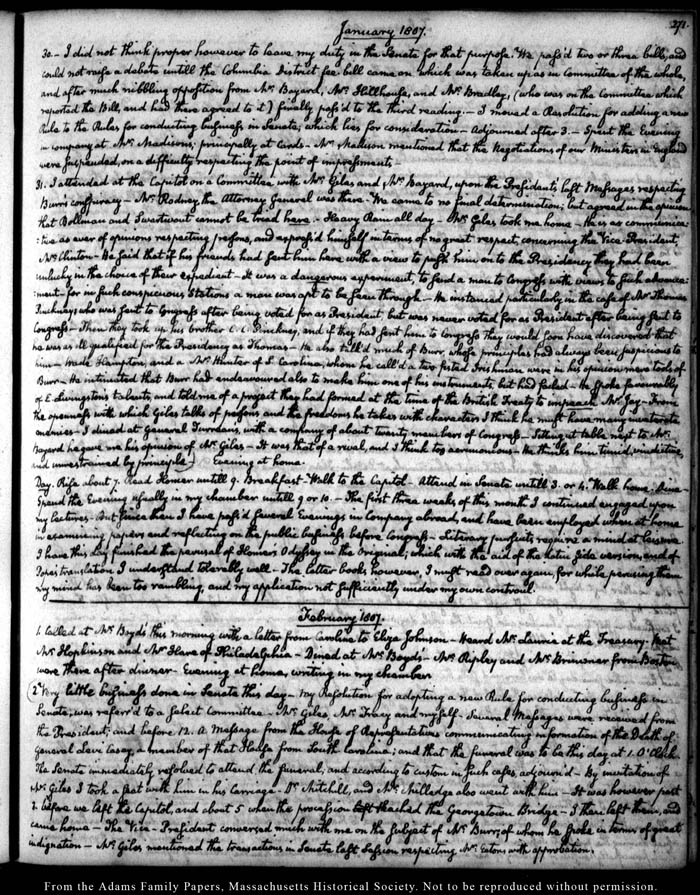 271.
January 1807.
30. – I did not think proper however to leave my duty in the Senate for that purpose. We pass'd two or three bills, and
could not raise a debate untill the Columbia District fee bill came on which was taken up as in Committee of the whole,
and after much nibbling opposition from Mr. Bayard, Mr. Hillhouse, and Mr. Bradley, (who was on the Committee which
reported the Bill, and had there agreed to it) finally pass'd to the third reading. – I moved a Resolution for adding a new
Rule to the Rules for conducting business in Senate; which lies for consideration – Adjourned after 3. – Spent the Evening
in company at Mr. Madison's; principally at Cards. – Mr. Madison mentioned that the Negotiations of our Ministers in England
were suspended, on a difficulty respecting the point of impressments. –
31. I attended at the Capitol on a Committee with Mr. Giles and Mr. Bayard, upon the President's last Messages respecting
Burr's conspiracy – Mr. Rodney, the Attorney General was there. We came to no final determination; but agreed in the opinion
that Bollman and Swartwout cannot be tried here. – Heavy Rain all day – Mr. Giles took me home – He is as communica
:tive as ever of opinions respecting persons, and express'd himself in terms of no great respect, concerning the Vice-President,
Mr. Clinton – He said that if his friends had sent him here with a view to push him on to the Presidency they had been
unlucky in the choice of their expedient – It was a dangerous experiment, to send a man to Congress with views to such advance:
:ment – for in such conspicuous Stations a man was apt to be seen through – He instanced particularly in the case of Mr. Thomas
Pinckney; who was sent to Congress after being voted for as President but was never voted for as President after being sent to
Congress – Then they took up his brother C. C. Pinckney, and if they had sent him to Congress they would soon have discovered that
he was as ill qualified for the Presidency as Thomas – He also talk'd much of Burr, whose principles had always been suspicious to
him – Wade Hampton, and a Mr. Hunter of S. Carolina, whom he call'd a two fisted Irishman were in his opinion mere tools of
Burr – He intimated that Burr had endeavoured also to make him one of his instruments, but had failed – He spoke favourably
of E. Livingston's talents, and told me of a project they had formed at the time of the British Treaty to impeach Mr. Jay – From
the openness with which Giles talks of persons and the freedoms he takes with characters I think he must have many inveterate
enemies – I dined at General Turreau's, with a company of about twenty members of Congress – Sitting at table next to Mr.
Bayard he gave me his opinion of Mr. Giles – It was that of a rival, and I think too acrimonious – He thinks him timid, vindictive,
and unrestrained by principle. Evening at home.
Day. Rise about 7. Read Homer untill 9. Breakfast – Walk to the Capitol – Attend in Senate untill 3. or 4. Walk home; dine –
Spend the Evening usually in my chamber untill 9 or 10. – The first three weeks of this month I continued engaged upon
my lectures – But since then I have pass'd several Evenings in Company abroad, and have been employed when at home
in examining papers and reflecting on the public business before Congress – Literary pursuits require a mind at leisure
I have this day finished the perusal of Homer's Odyssey in the Original; which with the aid of the latin side version, and of
Pope's translation I understand tolerably well – The latter books, however, I must read over again; for while perusing them
my mind has been too rambling, and my application not sufficiently under my own controul.
February 1807.
1. Called at Mr. Boyd's this morning with a letter from Caroline to Eliza Johnson – Heard Mr. Laurie at the Treasury. Met
Mr. Hopkinson and Mr. Hare of Philadelphia – Dined at Mr. Boyd's – Mr. Ripley and Mr. from Boston
were there after dinner – Evening at home, writing in my chamber.
2. Very little business done in Senate this day – My Resolution for adopting a new Rule for conducting business in
Senate, was referr'd to a select Committee – Mr. Giles, Mr. Tracy and myself – Several Messages were received from
the President; and before 12. a Message from the House of Representatives communicating information of the Death of
General Levi Casey, a member of that House from South Carolina; and that the funeral was to be this day at 1. O'Clock
The Senate immediately resolved to attend the funeral, and according to custom in such cases, adjourn'd – By invitation of
Mr. Giles I took a seat with him in his Carriage – Dr. Mitchill, and Mr. Milledge also went with him – It was however past
2. before we left the Capitol, and about 5 when the procession reached the Georgetown Bridge – I then left them, and
came home – The Vice-President conversed much with me on the subject of Mr. Burr; of whom he spoke in terms of great
indignation – Mr. Giles mentioned the transactions in Senate last Session respecting Mr. Eaton with approbation.
From the Adams Family Papers, Massachusetts Historical Society. Not to be reproduced without permission.